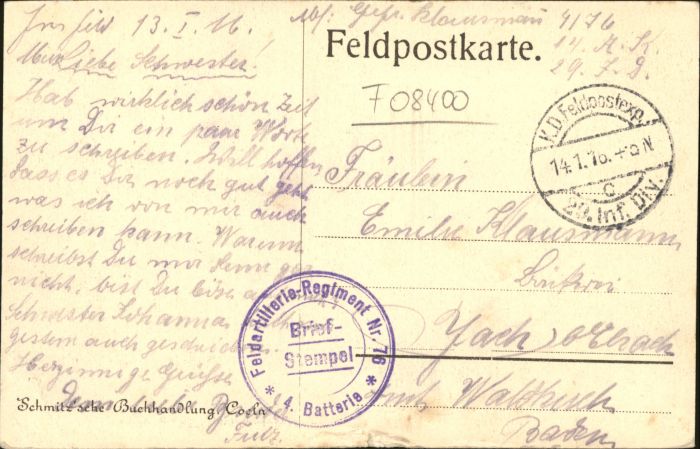 Im Feld 13. I. 16.
Meine Liebe Schwester!
Hab wirklich schön Zeit
um Dir ein paar Worte
zu schreiben. Will hoffen
dass es Dir noch gut geht
was ich von mir auch
schreiben kann. Warum
schreibst Du mir denn gar
nicht, bist Du böse
Schwester Johanna
gestern auch geschrieben
Herzinnige Grüsse
Dein lieb Bruder
Schmitz'sche Buchhandlung Coeln
Abs: Gefr. Klausmann 4/76
14. A. K.
29. I. D.
Feldpostkarte.
F 08400
K.D. Feldpostexp.
14.1.16. 4-5 N
c
29. Inf. Div.
Fräulein
Emilie Klausmann
Yach b/Elzach
Amt Waldkirch
Baden
Feldartillerie-Regiment Nr. 76
Brief-
Stempel
* 4. Batterie *